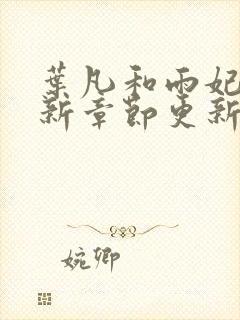 葉凡和雨妃
新章節更新
婉卿